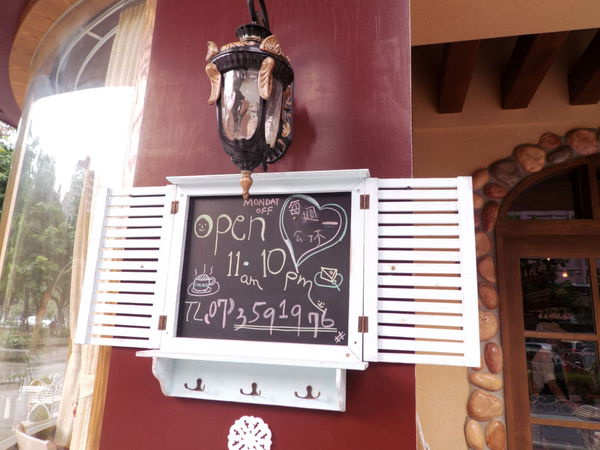 MONDAY
OFF
open
每週一
公休
11:10
am pm
(07)3591976